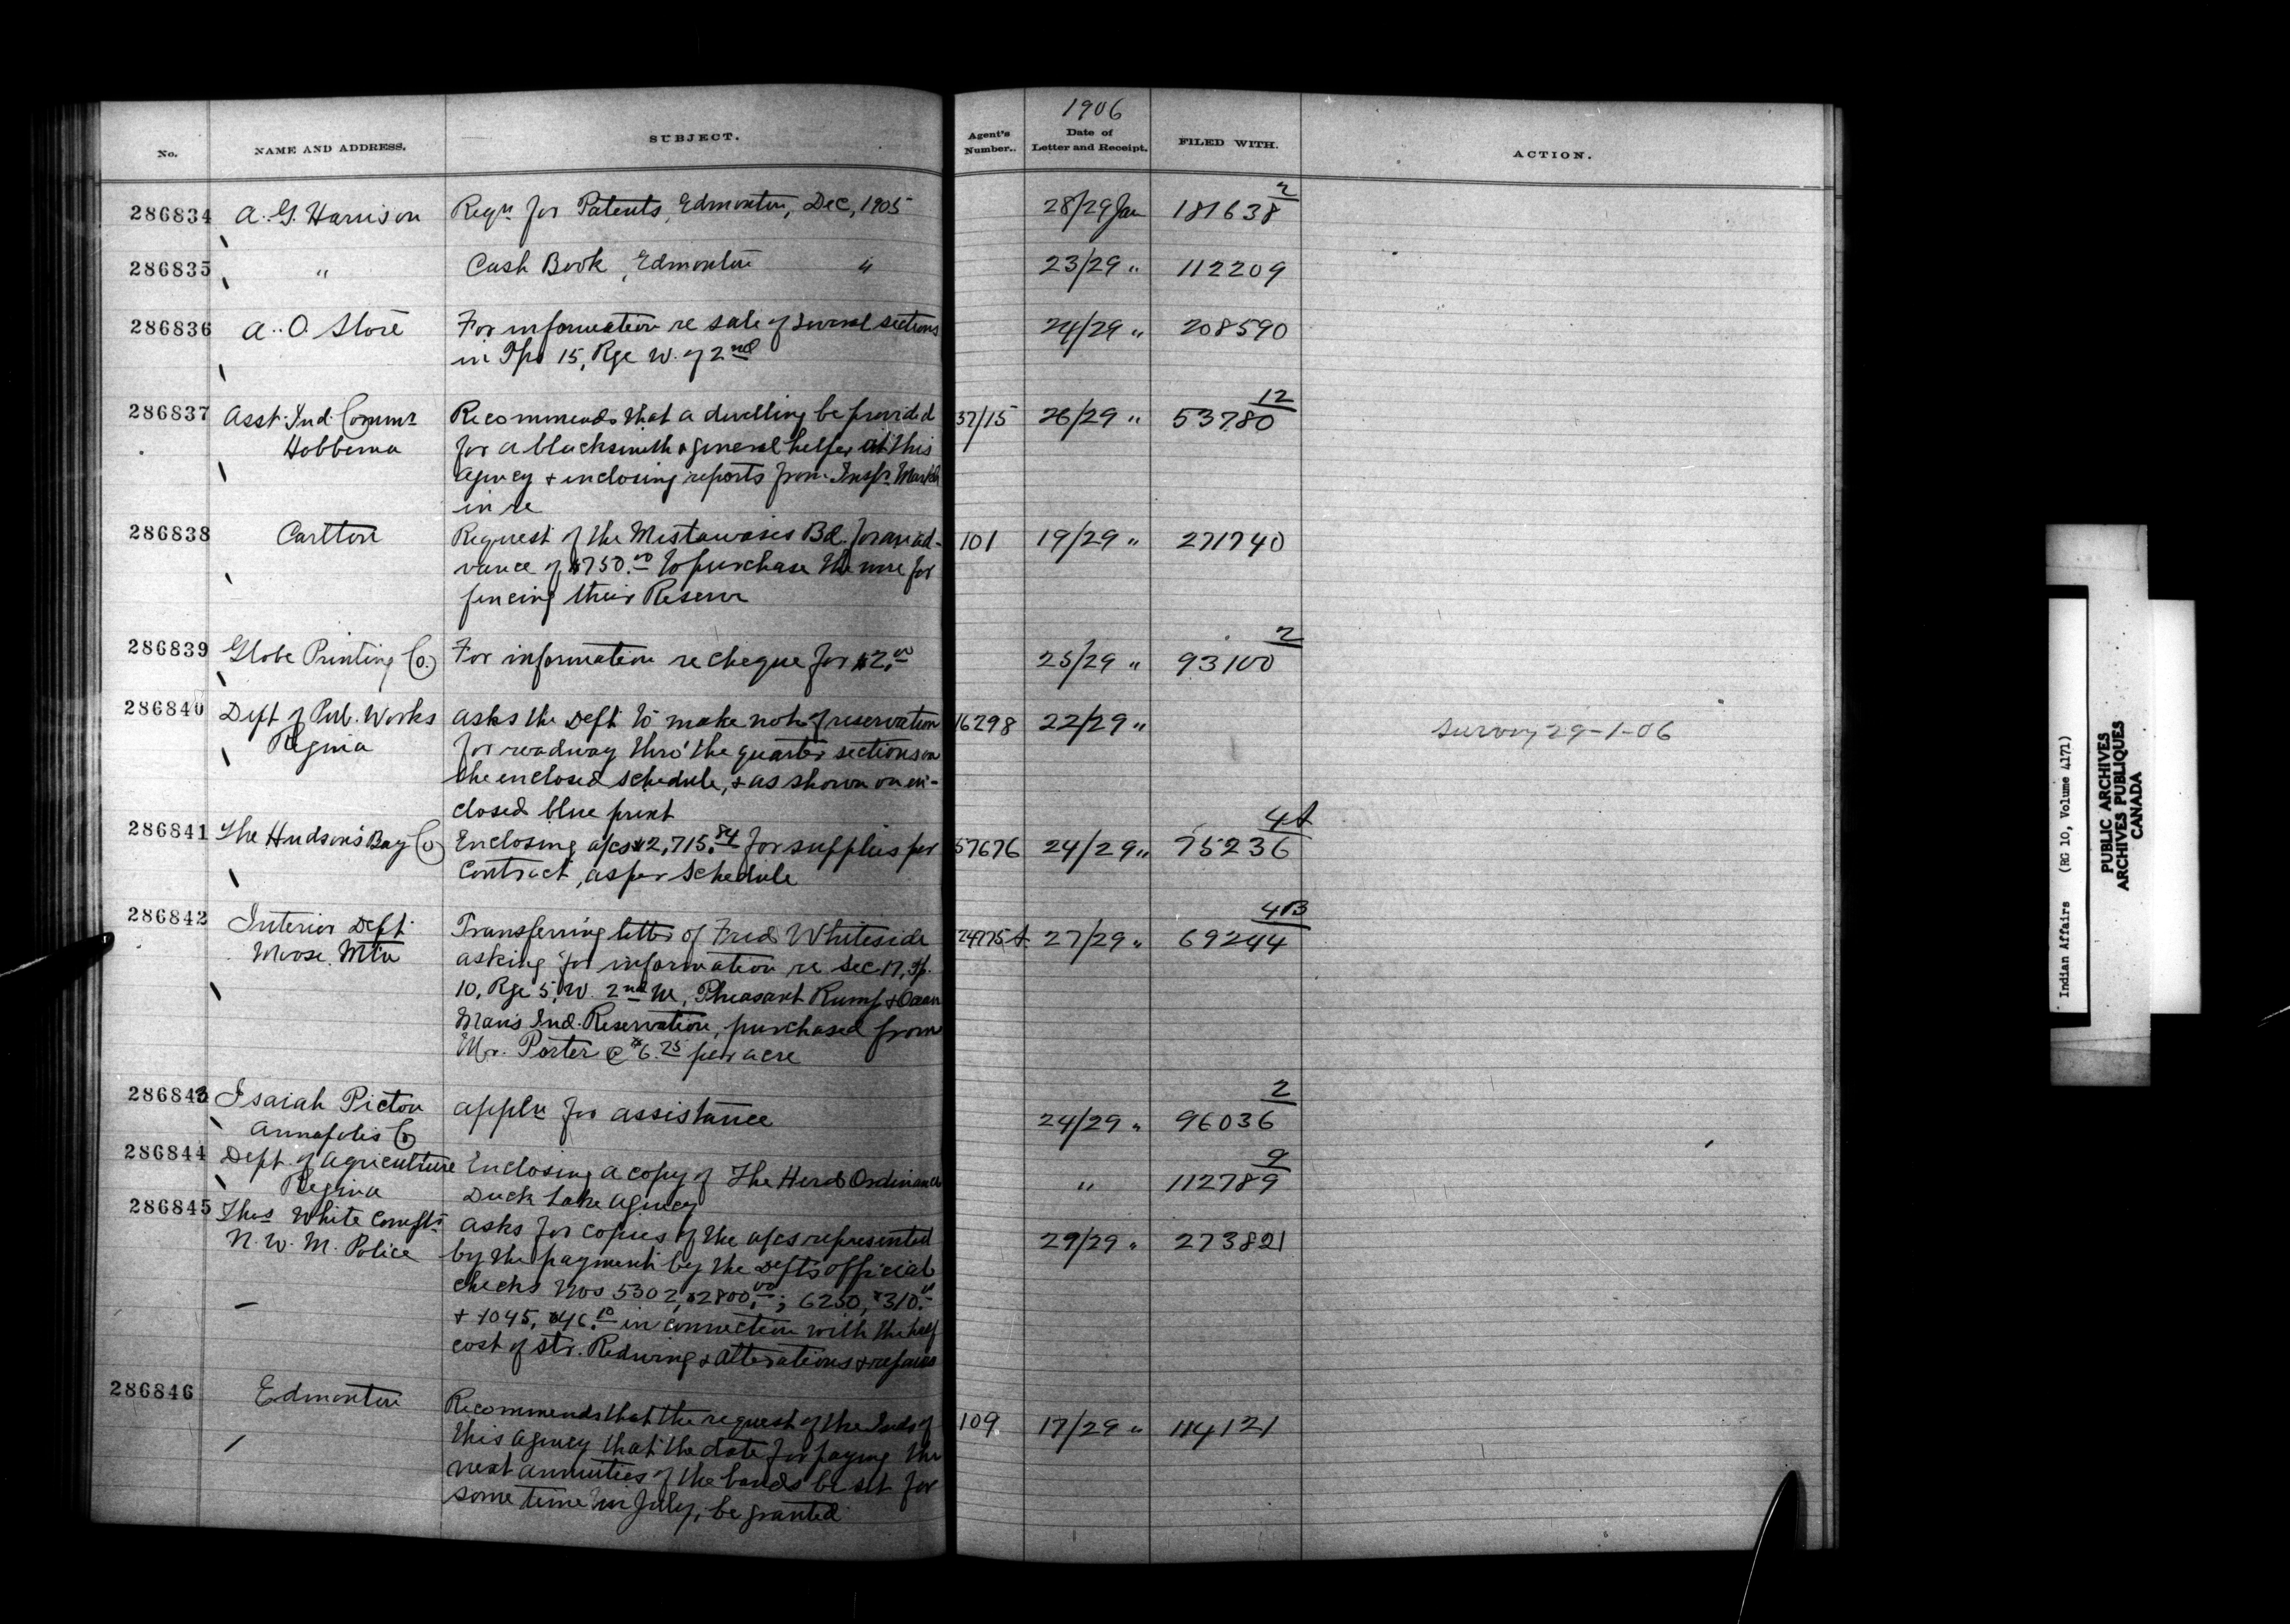 No. NAME AND ADDRESS. SUBJECT. Agent's Number.. 1906 Date of Letter and Receipt. FILED WITH. ACTION.
286834 A. G. Harrison Reqn for Patents, Edmonton, Dec, 1905 28/29 Jan 2 181638
286835 " Cash Book, Edmonton " 23/29 " 112209
286836 A. O. For information re sale of several sections 24/29 " 208590
in Tps 15, Rge W. of 2nd
286837 Asst. Ind. Commr Recommends that a dwelling be provided 37/15 26/29 " 12 53780
Hobbema for a blacksmith & general helper at this
agency & enclosing reports from Inspr. Markle
in re
286838 Carlton Request of the Mistawasis Bd. for an ad- 101 19/29 " 271740
vance of $750.00 to purchase the wire for
fencing their Reserve
286839 Globe Printing Co. For information re cheque for $2.00 25/29 " 2 93100
286840 Dept of Pub. Works asks the Dept to make note of reservation 16298 22/29 " Survey 29-1-06
Regina for roadway thro' the quarter sections on
the enclosed schedule, & as shown on en-
closed blue print
286841 The Hudson's Bay Co Enclosing a/cs $2,715.84 for supplies per 57676 24/29 " 4A 75236
Contract, as per schedule
286842 Interior Dept. Transferring letter of Fred Whiteside 27/29 " 4B 69244
Moose Mtn asking for information re Sec. 17, Tp.
10, Rge 5, W. 2nd M, Pheasant Rump & Ocean
Man's Ind. Reservation, purchased from
Mr. Porter @ $6.25 per acre
286843 Isaiah Picton appln for assistance 24/29 " 2 96036
Annapolis Co
286844 Dept. of Agriculture Enclosing a copy of The Herd Ordinance " 9 112789
Regina Duck Lake Agency
286845 Thos White Compt. asks for copies of the a/cs represented 29/29 " 273821
N. W. M. Police by the payment by the Dept's official
checks Nos 5302, $2800.00; 6250, $310.
& 1045, $46.10 in connection with the half
cost of str. Redwing & alterations & repairs
286846 Edmonton Recommends that the request of the Inds of 109 17/29 " 114121
this agency that the date for paying the
next annuities of the bands be set for
some time in July, be granted
Indian Affairs (RG 10, Volume 4171)
PUBLIC ARCHIVES
ARCHIVES PUBLIQUES
CANADA